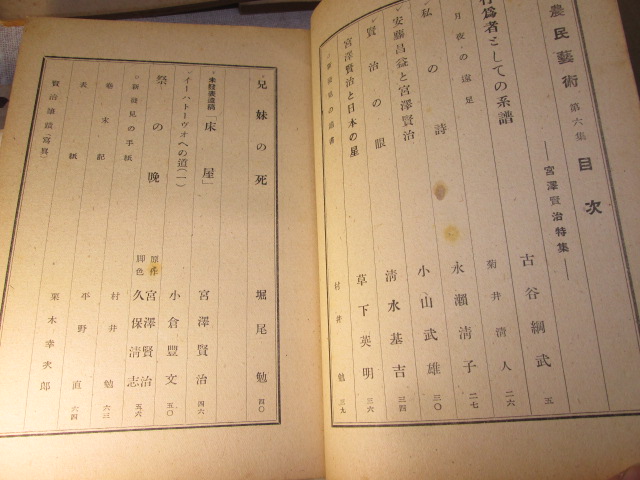 農民藝術 第六集 目次
―宮澤賢治特集―
行爲者としての系譜 古谷綱武 五
月夜の遠足 菊井清人 二六
私の詩 永瀬清子 二七
安藤昌益と宮澤賢治 小山武雄 三〇
賢治の眼 清水基吉 三四
宮澤賢治と日本の星 草下英明 三六
新發見の端書 村井勉 三九
兄妹の死 堀尾勉 四〇
未發表遺稿「床屋」 宮澤賢治 四六
イーハトーヴォへの道(一) 小倉豐文 五〇
祭の晩 原作 宮澤賢治 脚色 久保清志 五六
新發見の手紙
卷末記 村井勉 六三
表紙 平野直 六四
賢治筆蹟(寫眞) 栗木幸次郎